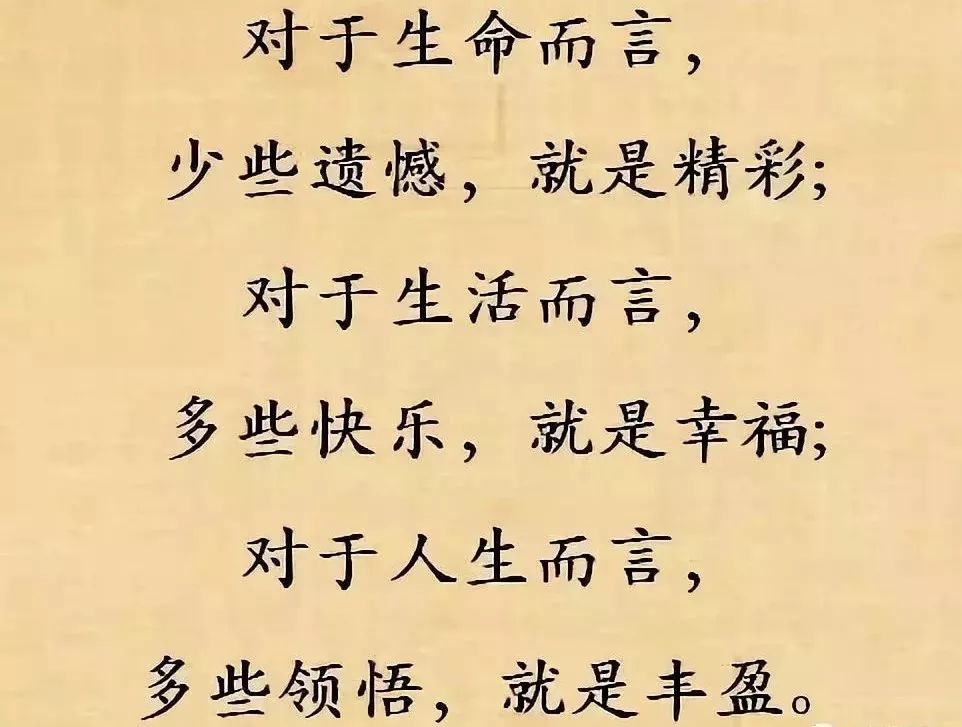 对于生命而言，
少些遗憾，就是精彩；
对于生活而言，
多些快乐，就是幸福；
对于人生而言，
多些领悟，就是丰盈。